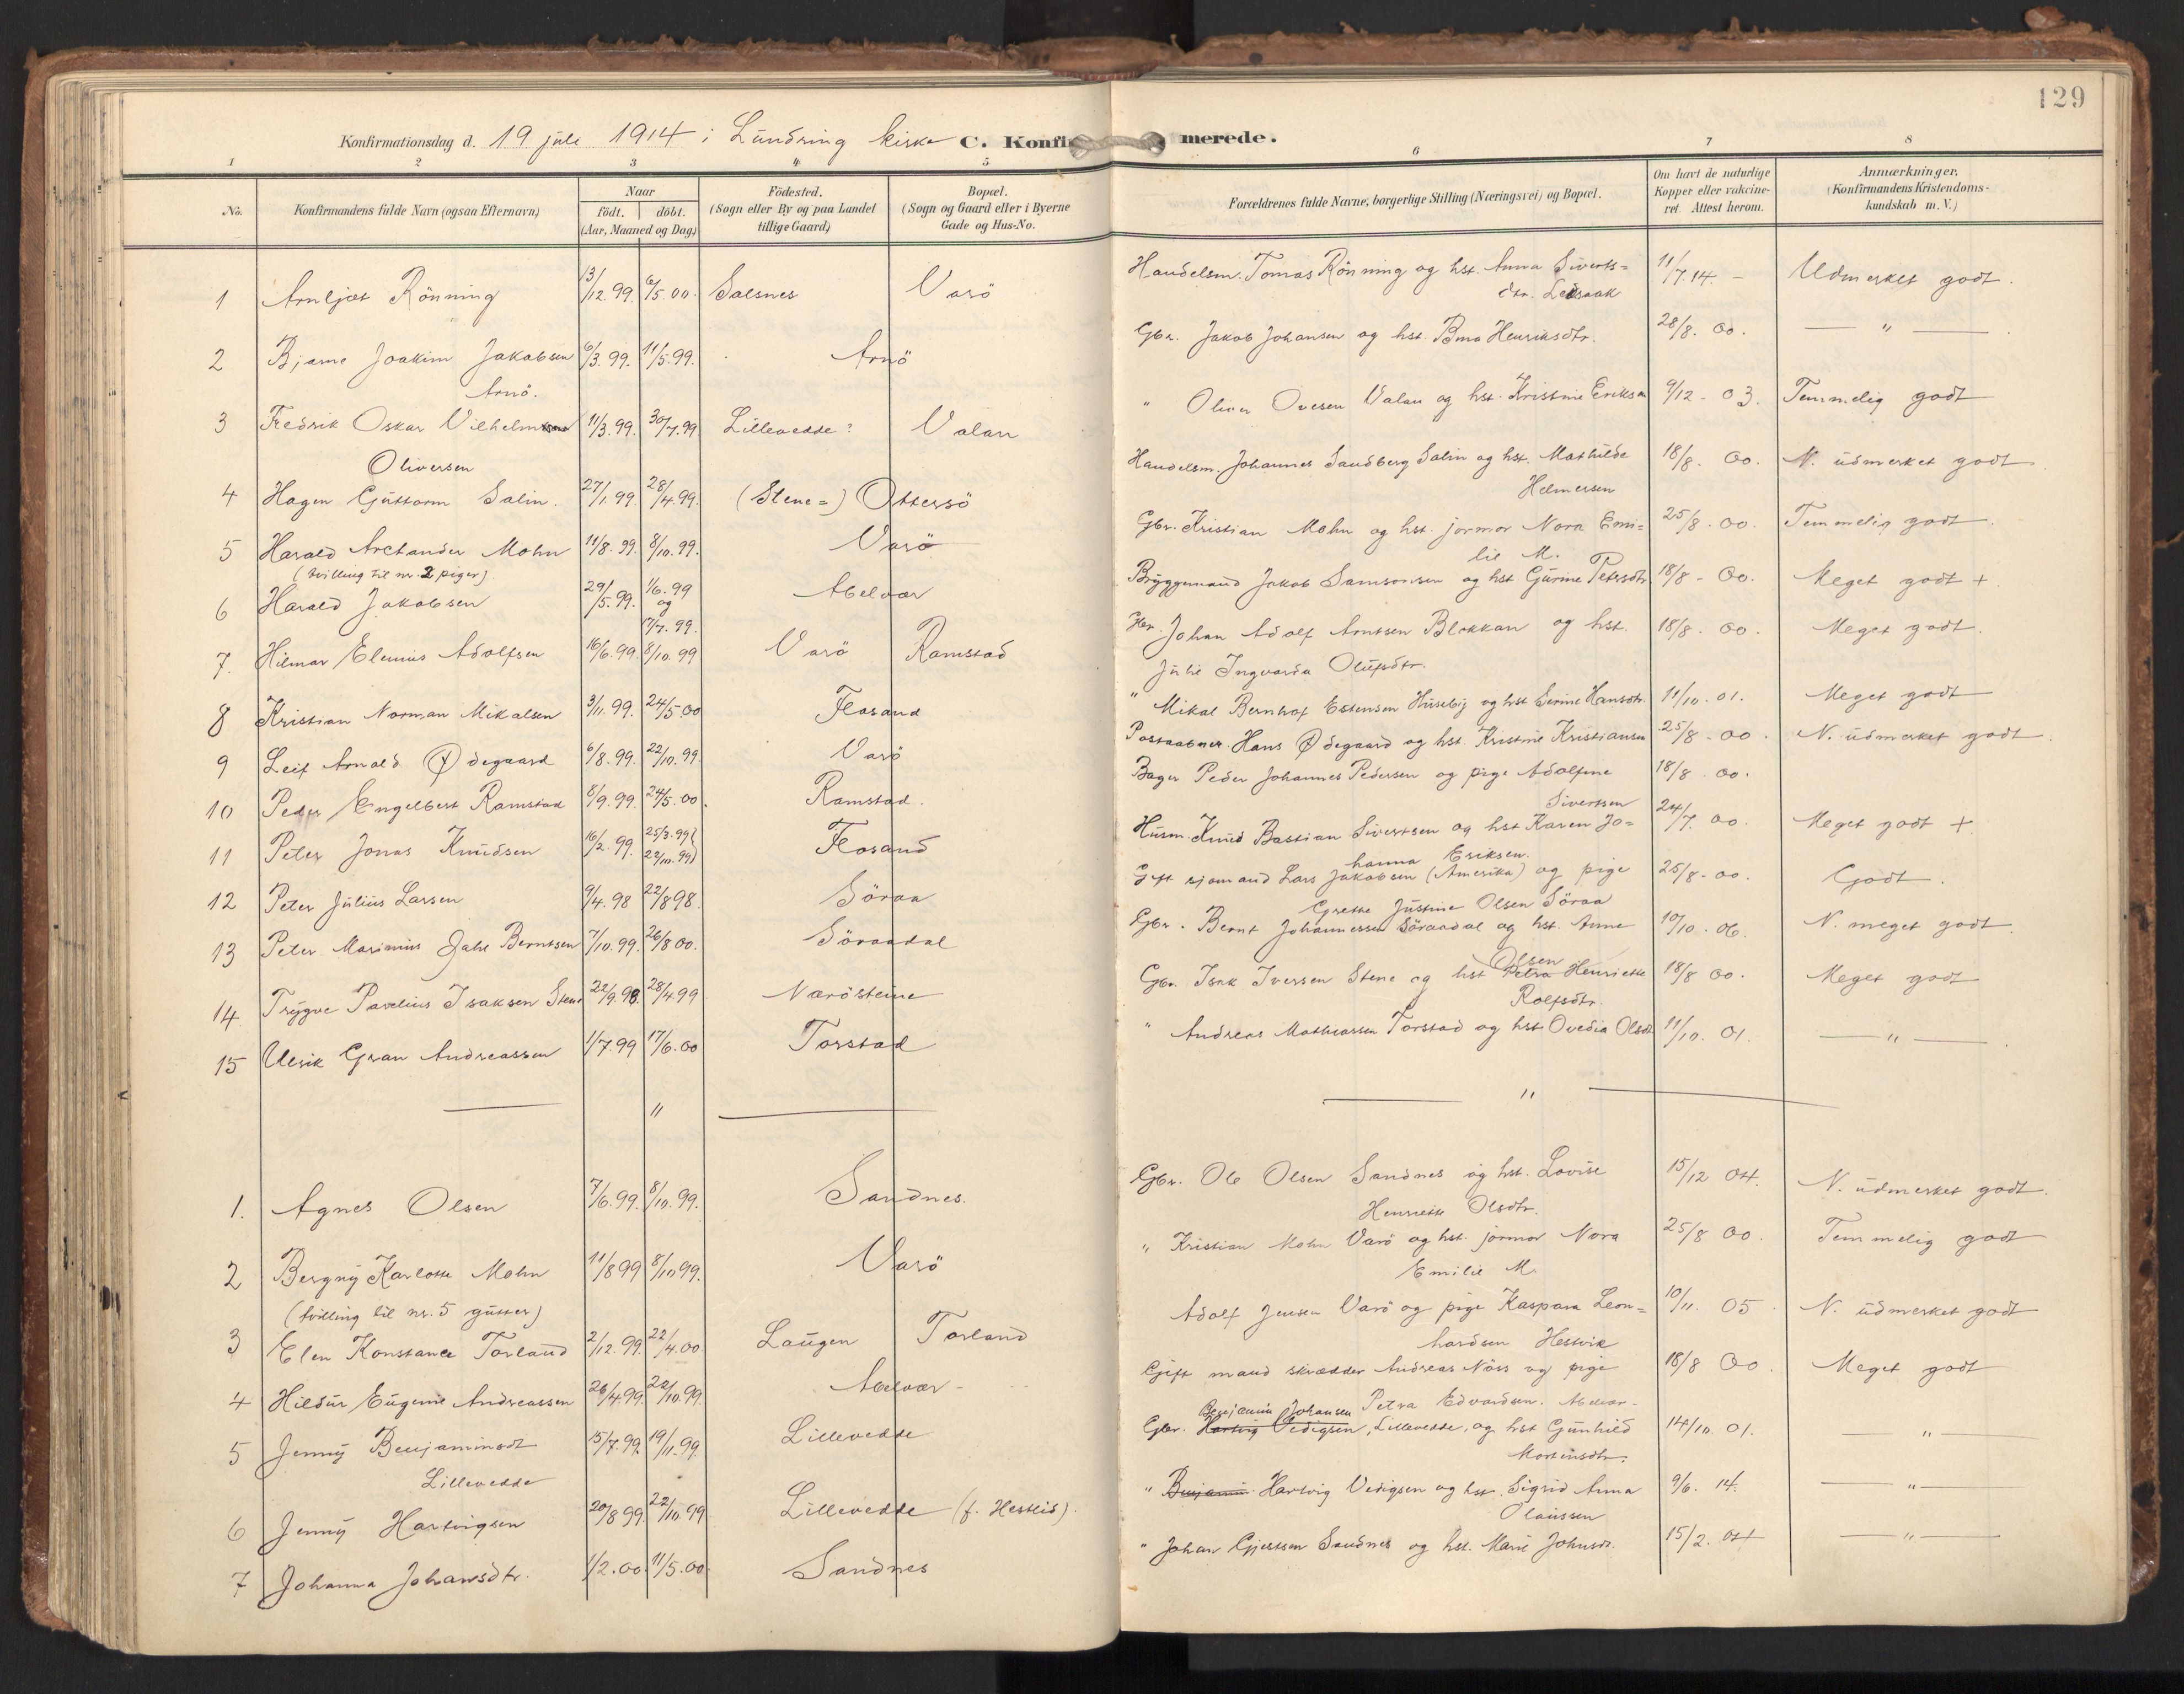 129
Konfirmationsdag d. 19 juli 1914 i Lundring kirke C. Konfirmerede.
1 2 3 4 5 6 7 8
No. Konfirmandens fulde Navn (ogsaa Efternavn) Naar födt. döbt. (Aar, Maaned og Dag) Födested. (Sogn eller By og paa Landet tillige Gaard) Bopæl. (Sogn og Gaard eller i Byerne Gade og Hus-No. Forældrenes fulde Navne, borgerlige Stilling (Næringsvei) og Bopæl. Om havt de naturlige Kopper eller vakcineret. Attest herom. Anmærkninger. (Konfirmandens Kristendomskundskab m. V.)
1 Arnljot Rönning 13/12.99. 6/5.00. Salsnes Varö Handelsm. Tomas Rönning og hst. Anna Siverts= 11/7.14. – Udmerket godt.
dtr. Ledsaak
2 Bjarne Joakim Jakobsen 6/3.99. 11/5.99. Arnö Gbr. Jakob Johansen og hst. Bina Henriksdtr. 28/8.00. — " —
Arnö.
3 Fredrik Oskar Vilhelm 11/3.99. 30/7.99 Lillevedde? Valan " Oliver Ovesen Valan og hst. Kristine Eriksen 9/12 - 03. Temmelig godt
Oliversen
4 Hagen Guttorm Salin. 27/1.99. 28/4.99. (Stene=) Ottersö Handelsm. Johannes Sandberg Salin og hst. Mathilde 18/8. 00. N. udmerket godt
Helmersen
5 Harald Archander Mohn 11/8.99. 8/10.99. Varö Gbr. Kristian Mohn og hst. jormor Nora Emi= 25/8.00. Temmelig godt.
(tvilling til nr. 2 piger)
lie M.
6 Harald Jakobsen 29/5.99. 1/6.99 og 17/7.99. Abelvær Bryggemand Jakob Samsonsen og hst. Gurine Petersdtr. 18/8 - 00. Meget godt +
7. Hilmar Elenius Adolfsen 16/6.99. 8/10.99 Varö Ramstad Gbr. Johan Adolf Arntsen Blokkan og hst. 18/8.00. Meget godt.
Julie Ingvarda Olufsdtr.
8 Kristian Norman Mikalsen 3/11.99. 24/5.00 Flosand " Mikal Bernhof Estensen Huseby og hst Serine Hansdtr. 11/10.01. Meget godt
9 Leif Arnold Ødegaard 6/8.99. 22/10.99. Varö Postaabner Hans Ødegaard og hst. Kristine Kristiansen 25/8 - 00. N. udmerket godt.
10 Peder Engelbert Ramstad 8/9.99. 24/5.00. Ramstad. Bager Peder Johannes Pedersen og pige Adolfine 18/8.00.
Sivertsen
11 Peter Jonas Knudsen 16/2.99. 25/3.99 22/10.99 Flosand Husm. Knud Bastian Sivertsen og hst Karen Jo= 24/7.00. Meget godt +
hanna Eriksen.
12 Peter Julius Larsen 9/4.98 22/8 98. Söraa Gift sjömand Lars Jakobsen (Amerika) og pige 25/8 - 00. Godt.
Grette Justine Olsen Söraa
13 Peter Marinius Dahl Berntsen 7/10.99. 26/8 00. Söraadal Gbr. Bernt Johannessen Söraadal og hst. Anne 10/10.06. N. meget godt.
Olsen
14 Trygve Pavelius Isaksen Stene 22/9.98. 28/4.99 Nærösteine Gbr. Isak Iversen Stene og hst Petra Henriette 18/8 00. Meget godt
Rolfsdtr.
15 Ulrik Gran Andreassen 1/7.99 17/6.00 Torstad " Andreas Mathiassen Torstad og hst Ovedia Olsdtr 11/10.01. — " —
— " — — " —
1. Agnes Olsen 7/6.99. 8/10.99. Sandnes. Gbr. Ole Olsen Sandnes og hst. Lovise 15/12 04. N. udmerket godt.
Henriette Olsdtr.
2 Bergny Karlotte Mohn 11/8 99 8/10 99. Varö " Kristian Mohn Varö og hst. jormor Nora 25/8 00. Temmelig godt
(tvilling til nr. 5 gutter)
Emilie M.
3 Elen Konstance Torland 2/12.99. 22/4.00. Laugen Torland Adolf Jensen Varö og pige Kaspara Leon= 10/11. 05. N. udmerket godt
hardsen Hestvik
4 Hildur Eugenie Andreassen 26/4.99. 22/10.99. Abelvær - Gift mand skrædder Andreas Näss og pige 18/8 00. Meget godt
Petra Edvardsen. Abelvær.
5 Jenny Benjaminsdt 15/7.99. 19/11.99. Lillevedde Gbr. Hartvig Benjamin Johansen Vedigsen, Lillevedde, og hst Gunhild 14/10.01. — " —
Lillevedde
Mortensdtr.
6 Jenny Hartvigsen 20/8 99. 22/10.99 Lillevedde (f. Hestlid). " Benjamin Hartvig Vedigsen og hst. Sigrid Anna 9/6.14. — " —
Olaussen
7 Johanna Johansdtr. 1/2.00. 11/5.00. Sandnes " Johan Gjertsen Sandnes og hst. Marie Johnsdr. 15/2.04 — " —